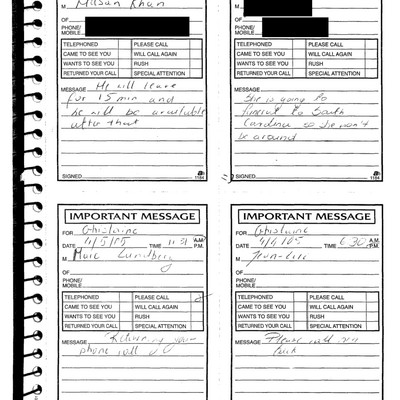 M
OF
PHONE/
MOBILE
TELEPHONED PLEASE CALL
CAME TO SEE YOU WILL CALL AGAIN
WANTS TO SEE YOU RUSH
RETURNED YOUR CALL SPECIAL ATTENTION
MESSAGE He will leave
for 15 min and
he will be available
after that
SIGNED
1184
M
OF
PHONE/
MOBILE
TELEPHONED PLEASE CALL
CAME TO SEE YOU WILL CALL AGAIN
WANTS TO SEE YOU RUSH
RETURNED YOUR CALL SPECIAL ATTENTION
MESSAGE
She is going to
funeral to South
Carolina so she won't
be around
SIGNED
1184
IMPORTANT MESSAGE
FOR Ghislaine
DATE 4/5/05 TIME A.M.
P.M.
M Marc
OF
PHONE/
MOBILE
TELEPHONED PLEASE CALL
CAME TO SEE YOU WILL CALL AGAIN
WANTS TO SEE YOU RUSH
RETURNED YOUR CALL SPECIAL ATTENTION
MESSAGE Returning your
phone call
IMPORTANT MESSAGE
FOR Ghislaine
DATE TIME 6:30 A.M.
P.M.
M Jean-Luc
OF
PHONE/
MOBILE
TELEPHONED PLEASE CALL
CAME TO SEE YOU WILL CALL AGAIN
WANTS TO SEE YOU RUSH
RETURNED YOUR CALL SPECIAL ATTENTION
MESSAGE Please call him
back